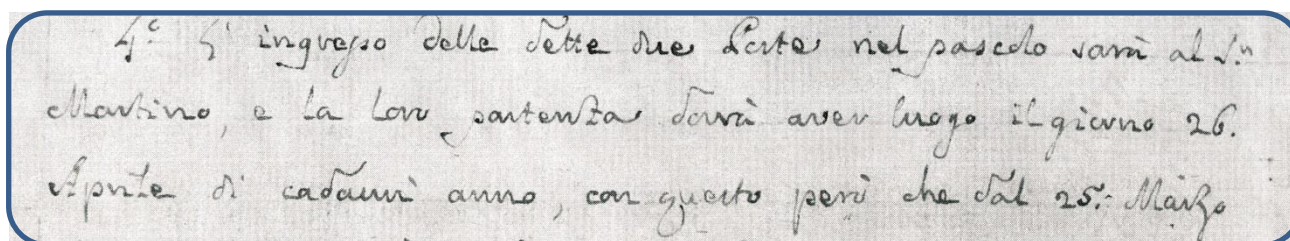 4º L'ingresso delle dette due Poste nel pascolo sarà al S.n
Martino, e la loro partenza dovrà aver luogo il giorno 26.
Aprile di cadaun anno, con questo però che dal 25. Marzo